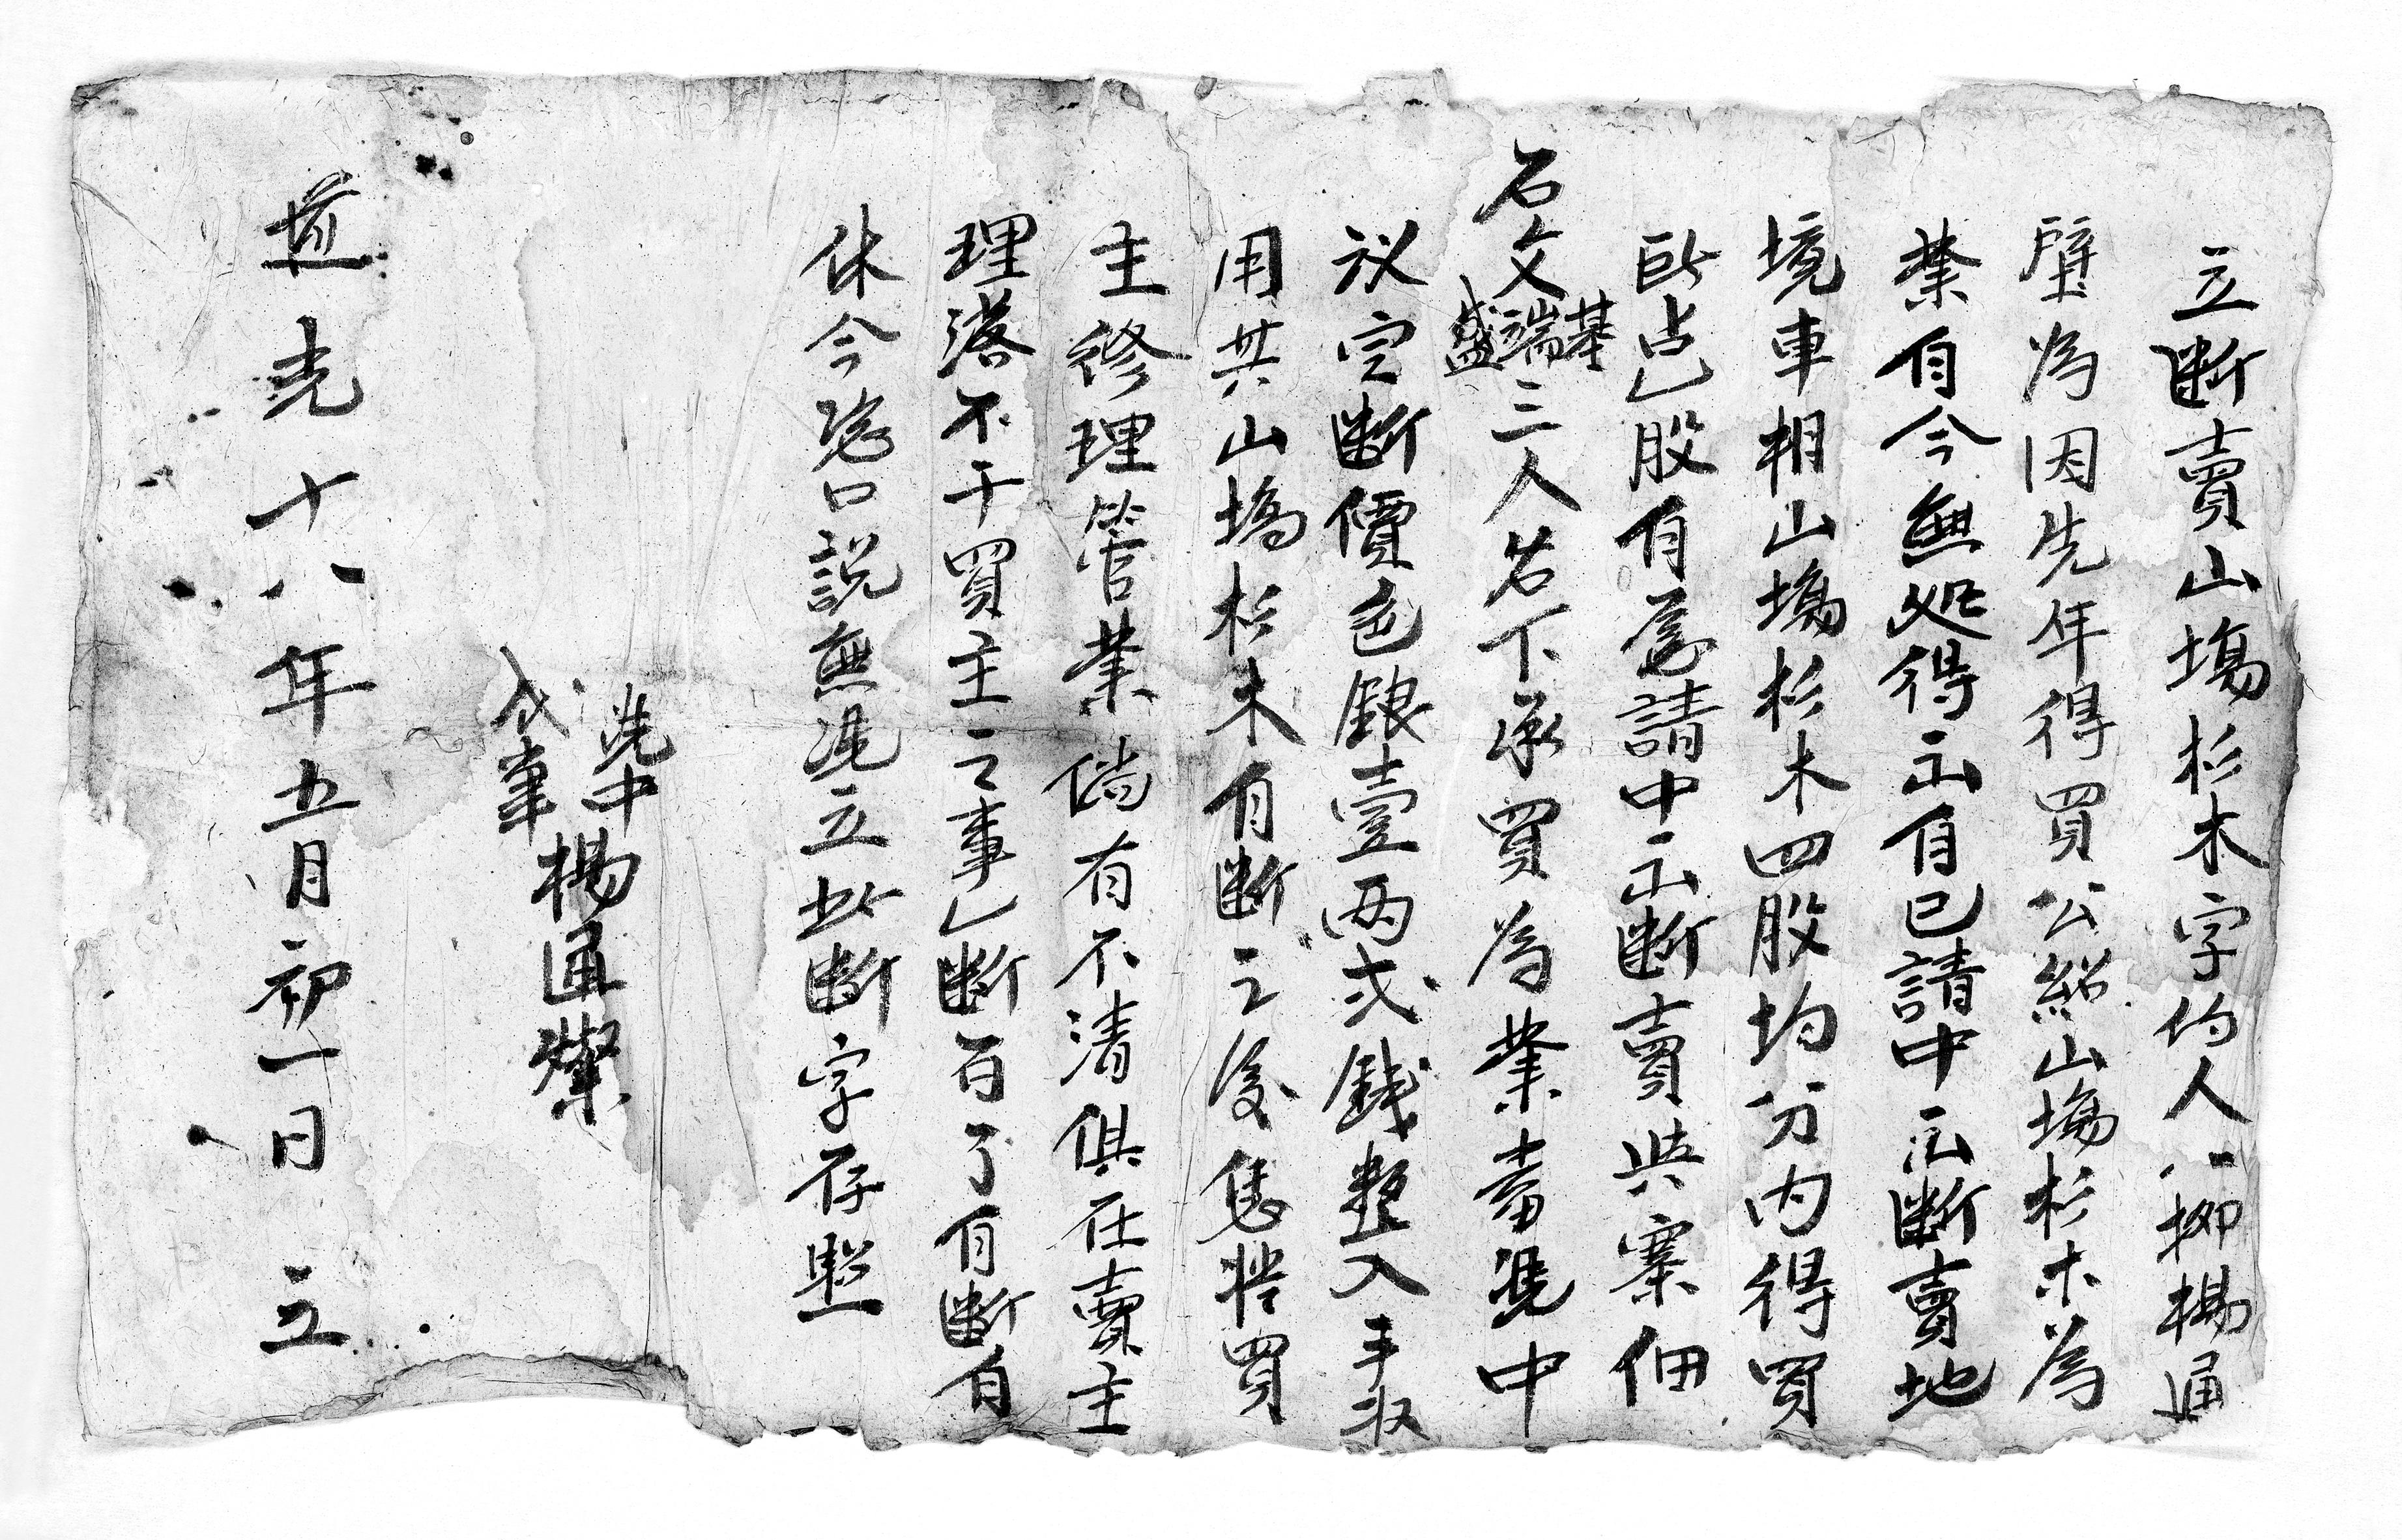 立断賣山塲杉木字約人八柳楊通
璧為因先年得買公紹山塲杉木為
業自今無処得出自己請中出断賣地
境車相山塲杉木四股均分內得買
此占乚股自愿請中出断賣與寨佃
石文基端盛三人名下承買為業畨憑中
议定断價色銀壹两弍錢整入手収
用其山塲杉木自断之後凭𢬵買
主修理管業倘有不清俱在賣主
理落不干買主之事乚断百了自断自
休今恐口説無凴立此断字存照
凴中
代筆
楊通燦
道光十八年五月初一日 立